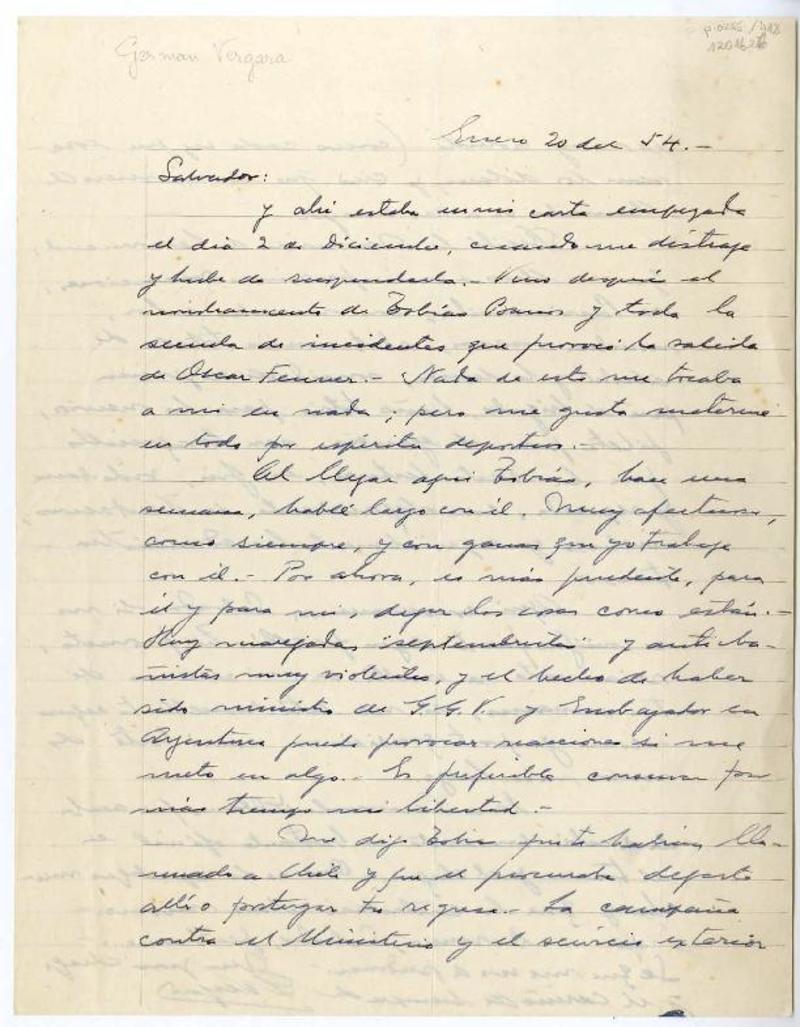 German Vergara
Enero 20 del 54.-
Salvador:
Y ahi estaba en mi carta empezada
el dia 2 de Diciembre, cuando me distraje
y hube de suspenderla.- Vino después el
nombramiento de Tobías Barros y toda la
secuela de incidentes que provocó la salida
de Oscar Fenner.- Nada de esto me tocaba
a mi en nada; pero me gusta meterme
en todo por espíritu deportivo.-
Al llegar aquí Tobías, hace una
semana, hablé largo con él. Muy afectuoso,
como siempre, y con ganas que yo trabaje
con él.- Por ahora, es más prudente, para
él y para mi, dejar las cosas como están.-
Hay marejadas "septembrista" y antiiba-
ñistas muy violentas, y el hecho de haber
sido ministro de G.G.V. y Embajador en
Argentina puede provocar reacciones si me
meto en algo.- Es preferible conservar por
más tiempo mi libertad.-
Me dijo Tobías que te habían lla-
mado a Chile y que el procuraba dejarte
allí o postergar tu regreso.- La campaña
contra el Ministerio y el servicio exterior